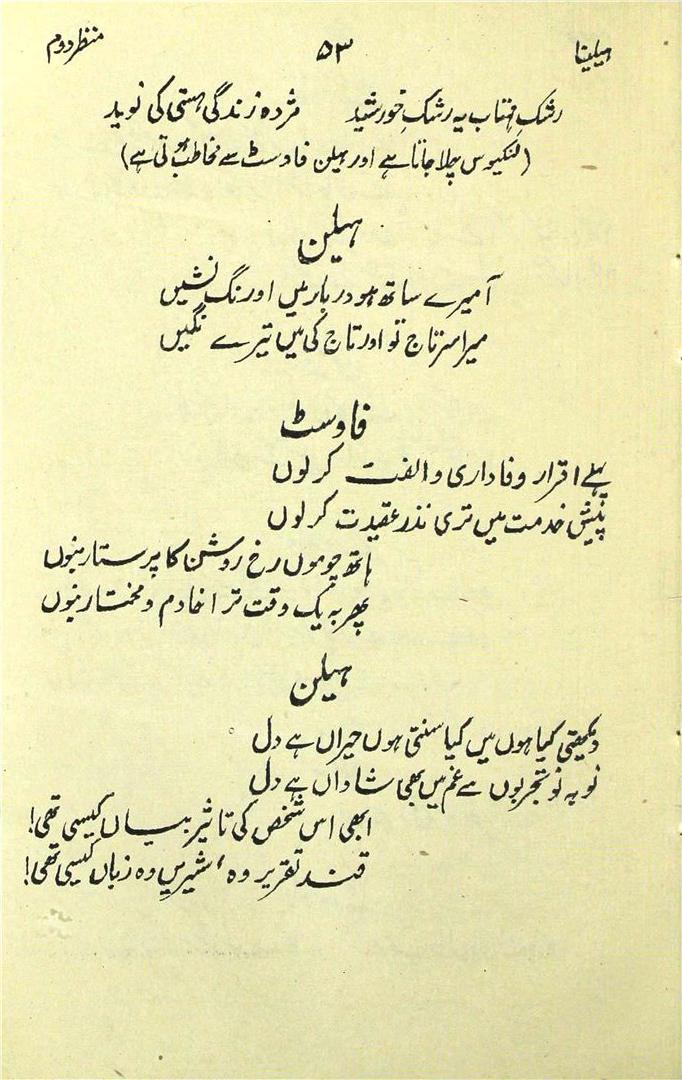 ہیلینا ۵۳ منظر دوم
رشکِ مہتاب یہ رشکِ خورشید مژدہ زندگی ہستی کی نوید
(لنکیوس چلا جاتا ہے اور ہیلن فاوسٹ سے مخاطب ہوتی ہے)
ہیلن
آ میرے ساتھ ہو دربار میں اورنگ نشیں
میرا سرتاج تو اور تاج کی ہیں تیرے نگیں
فاوسٹ
پہلے اقرار وفاداری و الفت کر لوں
پیش خدمت میں تری نذر عقیدت کر لوں
ہاتھ چوموں رخ روشن کا پرستار بنوں
پھر بہ یک وقت ترا خادم و مختار بنوں
ہیلن
دیکھتی کیا ہوں میں کیا سنتی ہوں حیراں ہے دل
نو بہ نو تجربوں سے غم میں بھی شاداں ہے دل
ابھی اس شخص کی تاثیر بیاں کیسی تھی!
قند تقریر وہ، شیریں وہ زباں کیسی تھی!